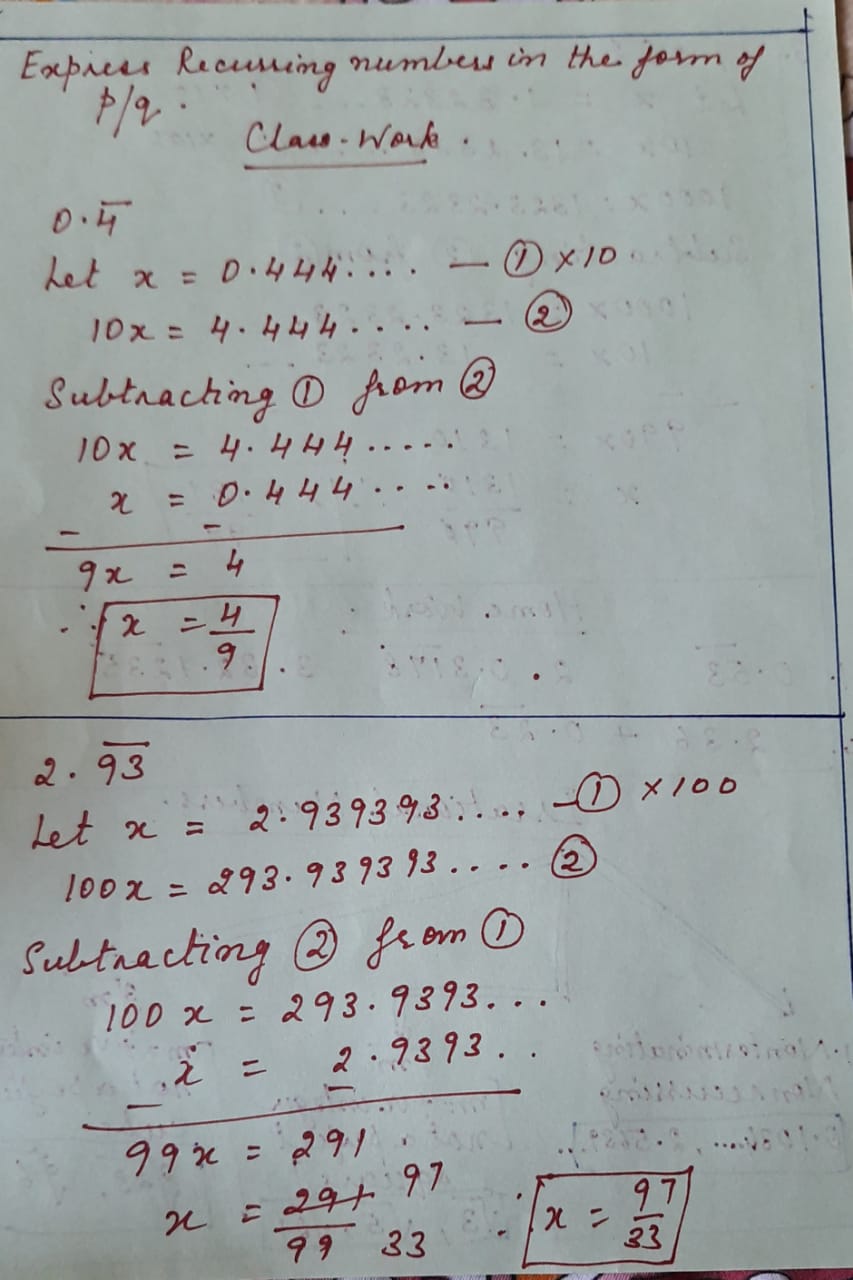 Express Recurring numbers in the form of
p/q.
Class-Work.
0.4̅
Let x = 0.444.... — ① ×10
10x = 4.444.... — ②
Subtracting ① from ②
10x = 4.444.....
x = 0.444....
− −
9x = 4
∴ x = 4/9
2.9̅3̅
Let x = 2.939393.... — ① ×100
100x = 293.939393.... ②
Subtracting ② from ①
100x = 293.9393...
x = 2.9393..
− −
99x = 291
x = 291/99 97/33 ∴ x = 97/33